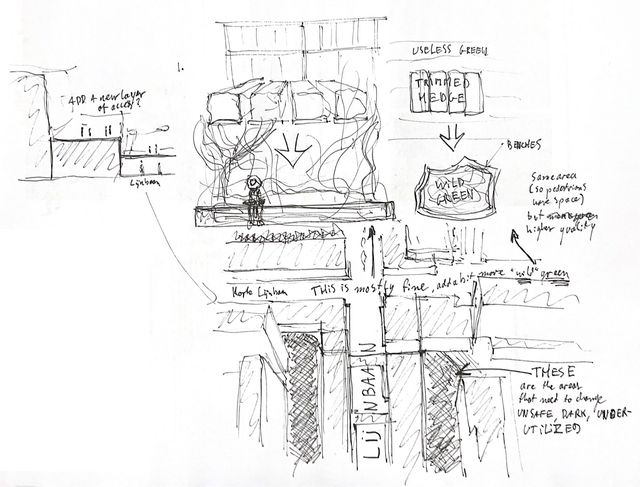 1.
ADD A new LAYER
of access?
Lijnbaan
USELESS GREEN
TRIMMED
HEDGE
BENCHES
WILD
GREEN
Same area
(so pedestrians
have space)
but
higher quality
Korte Lijnbaan
This is mostly fine, add a bit more "wild" green
LIJNBAAN
THESE
are the areas
that need to change
UNSAFE, DARK, UNDER-
UTILIZED